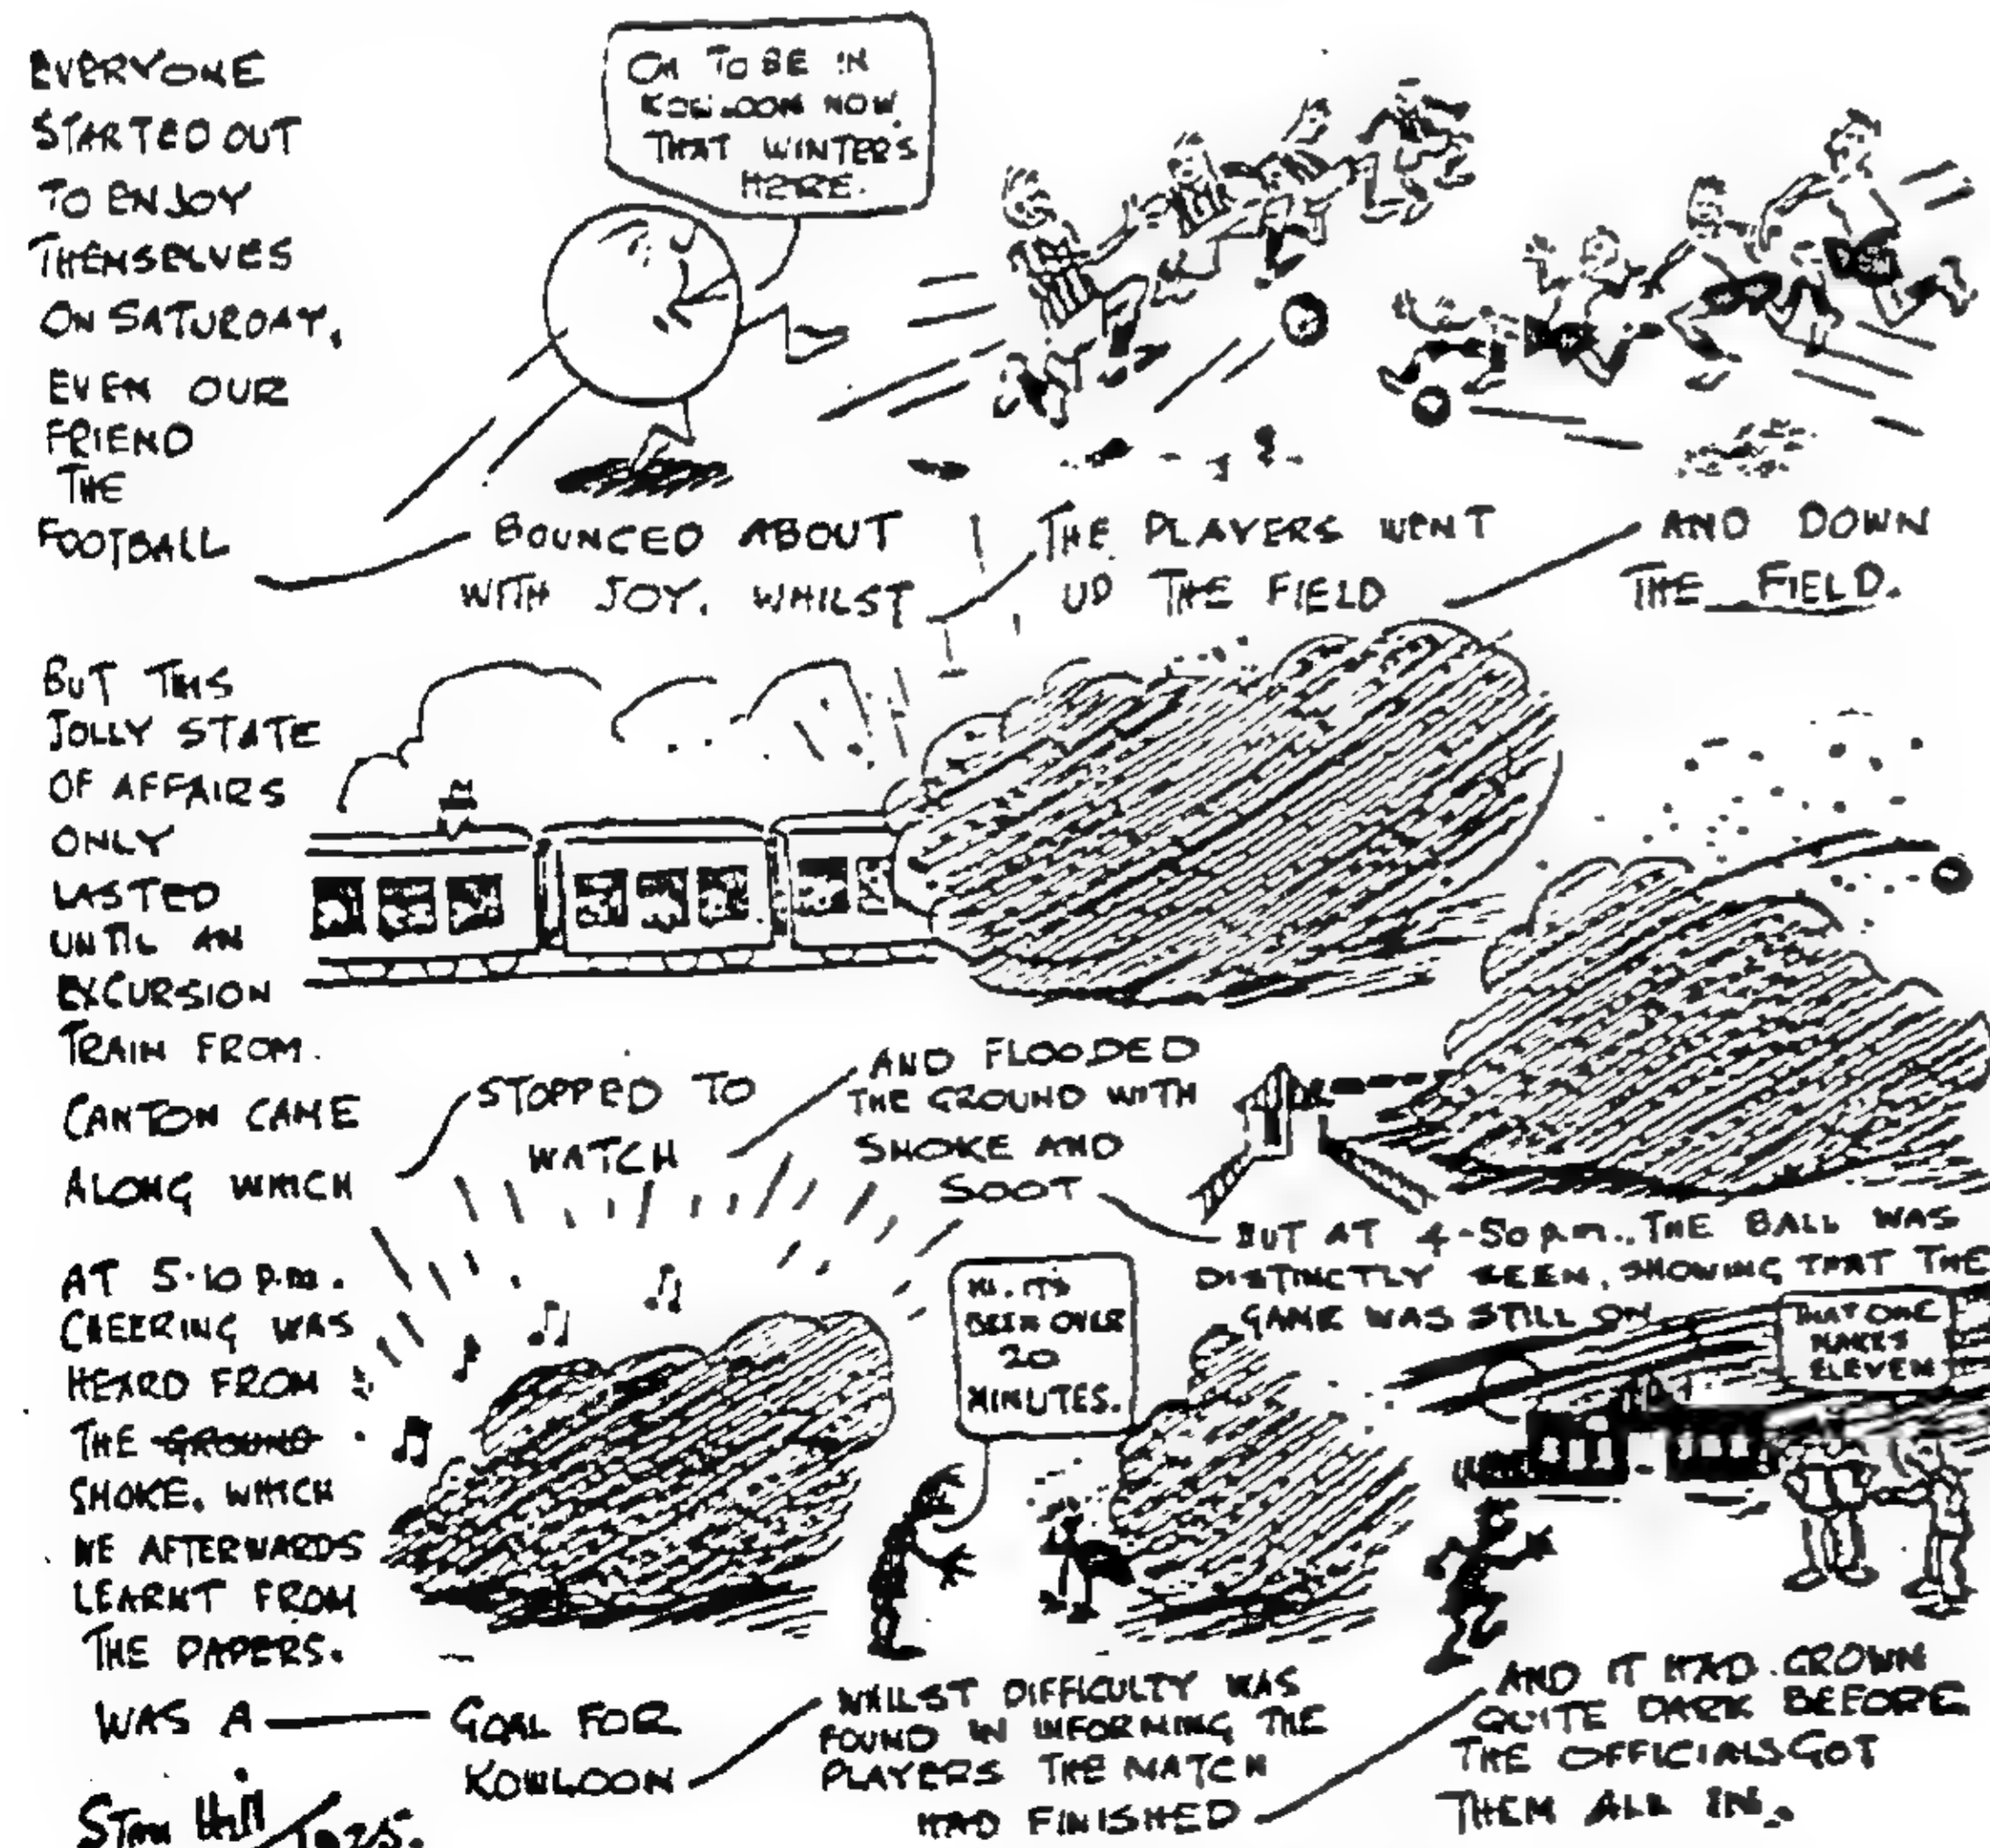 EVERYONE
STARTED OUT
TO ENJOY
THEMSELVES
ON SATURDAY,
EVEN OUR
FRIEND
THE
FOOTBALL
OH TO BE IN
KOWLOON NOW
THAT WINTER'S
HERE.
BOUNCED ABOUT
WITH JOY. WHILST
THE PLAYERS WENT
UP THE FIELD
AND DOWN
THE FIELD.
BUT THIS
JOLLY STATE
OF AFFAIRS
ONLY
LASTED
UNTIL AN
EXCURSION
TRAIN FROM
CANTON CAME
ALONG WHICH
STOPPED TO
WATCH
AND FLOODED
THE GROUND WITH
SMOKE AND
SOOT
BUT AT 4-50 p.m., THE BALL WAS
DISTINCTLY SEEN, SHOWING THAT THE
GAME WAS STILL ON
AT 5.10 p.m.
CHEERING WAS
HEARD FROM
THE GROUND
SMOKE. WHICH
WE AFTERWARDS
LEARNT FROM
THE PAPERS.
WAS A
GOAL FOR
KOWLOON
HI. IT'S
BEEN OVER
20
MINUTES.
WHILST DIFFICULTY WAS
FOUND IN INFORMING THE
PLAYERS THE MATCH
HAD FINISHED
THAT ONE
MAKES
ELEVEN
AND IT HAD GROWN
QUITE DARK BEFORE
THE OFFICIALS GOT
THEM ALL IN.
Stan Hill
1925.